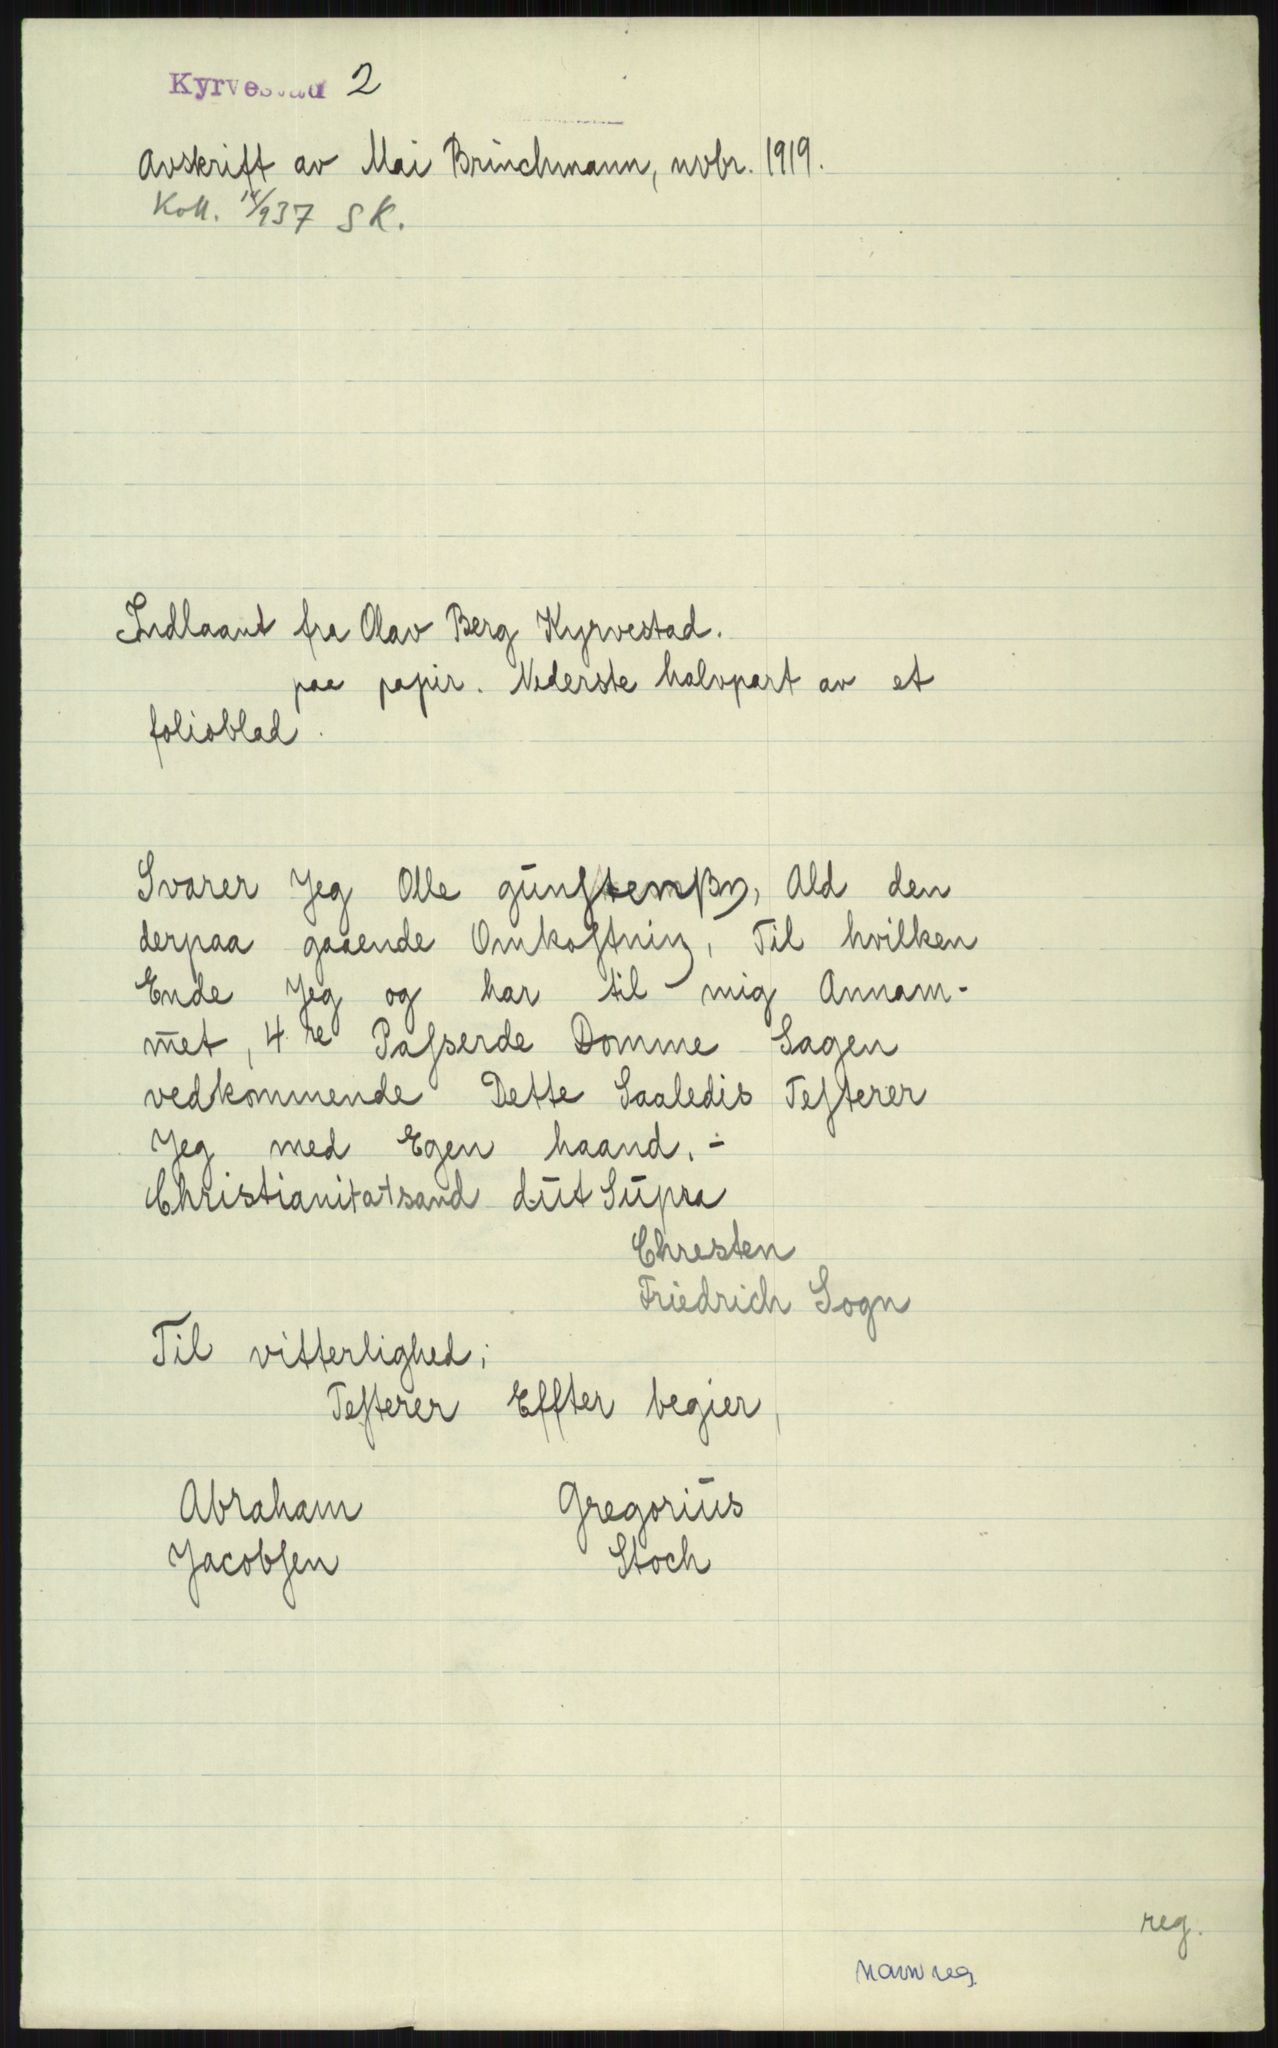 Kyrvestad 2
Avskrift av Mai Brinchmann, novbr. 1919.
Koll. /937 S K.
Indlaant fra Olav Berg Kyrvestad.
paa papir. Nederste halvpart av et
folioblad.
Svarer Jeg Olle gūnſtenßȳ, Ald den
derpaa gaaende Omkoſtning, Til hvilken
Ende Jeg og har til mig Annam-
met, 4re Paſserde Domme Sagen
vedkommende Dette Saaledis Teſterer
Jeg med Egen haand. -
Christiani+at+sand dūt Sūpra
Chresten
Friedrich Sogn
Til vitterlighed;
Teſterer Effter begier,
Abraham Gregoriūs
Jacobſen Stoch
reg.
navnreg.